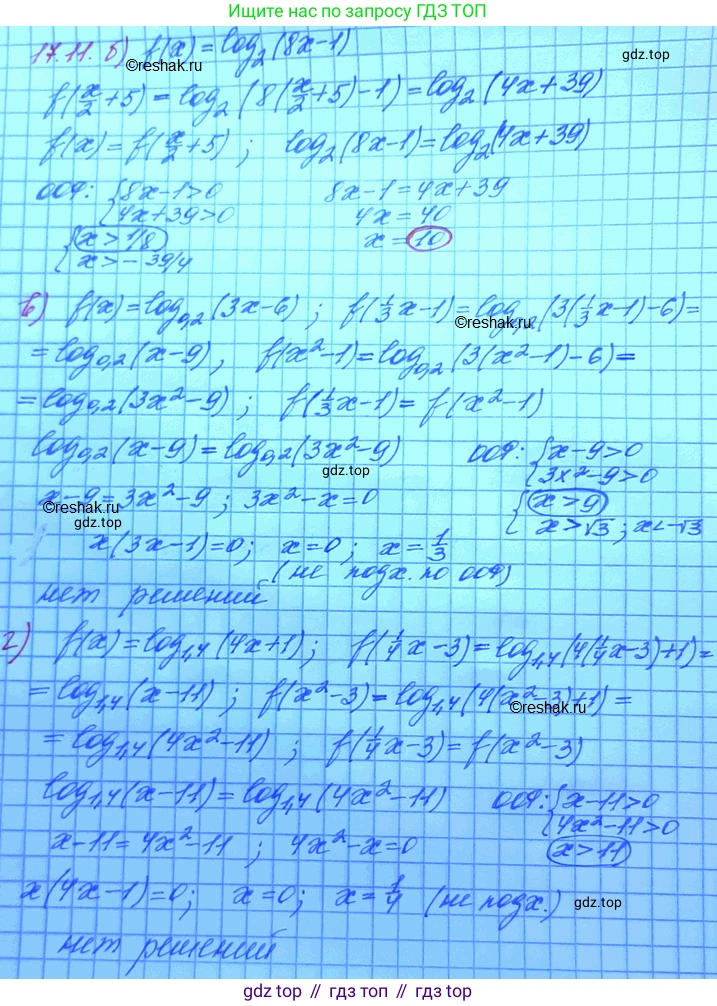 Ищите нас по запросу ГДЗ ТОП
17.11. б) f(x) = log₂(8x-1)
©reshak.ru
gdz.top
f(x/2+5) = log₂(8(x/2+5)-1) = log₂(4x+39)
f(x) = f(x/2+5) ; log₂(8x-1) = log₂(4x+39)
ООФ: { 8x-1>0 8x-1 = 4x+39
4x+39>0 4x = 40
{ x>1/8 x = 10
x>-39/4
в) f(x) = log₀,₂(3x-6) ; f(1/3x-1) = log₀,₂(3(1/3x-1)-6) =
©reshak.ru
= log₀,₂(x-9), f(x²-1) = log₀,₂(3(x²-1)-6) =
= log₀,₂(3x²-9) ; f(1/3x-1) = f(x²-1)
log₀,₂(x-9) = log₀,₂(3x²-9) ООФ: { x-9>0
gdz.top
3x²-9>0
x-9 = 3x²-9 ; 3x²-x=0 { x>9
©reshak.ru
x>√3 ; x<-√3
x(3x-1)=0; x=0; x=1/3
(не подх. по ООФ)
нет решений
г) f(x) = log₁,₄(4x+1) ; f(1/4x-3) = log₁,₄(4(1/4x-3)+1) =
= log₁,₄(x-11) ; f(x²-3) = log₁,₄(4(x²-3)+1) =
©reshak.ru
= log₁,₄(4x²-11) ; f(1/4x-3) = f(x²-3)
log₁,₄(x-11) = log₁,₄(4x²-11) ООФ: { x-11>0
4x²-11>0
x-11 = 4x²-11 ; 4x²-x=0 x>11
x(4x-1)=0; x=0; x=1/4 (не подх.)
gdz.top
нет решений
gdz.top // гдз.топ // gdz.top